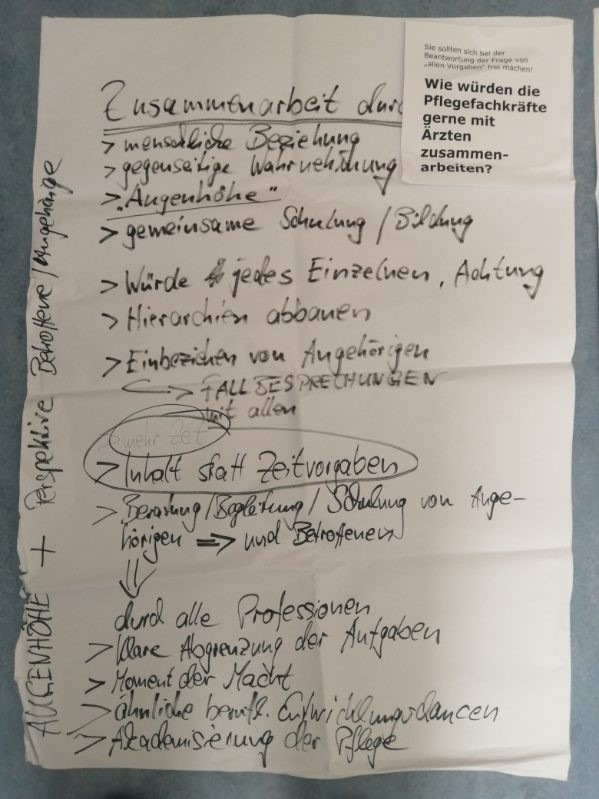 Sie sollten sich bei der
Beantwortung der Frage von
„allen Vorgaben" frei machen!
Wie würden die
Pflegefachkräfte
gerne mit
Ärzten
zusammen-
arbeiten?
Zusammenarbeit durc
> menschliche Beziehung
> gegenseitige Wahrnehmung
> „Augenhöhe"
> gemeinsame Schulung / Bildung
> Würde jedes Einzelnen, Achtung
> Hierarchien abbauen
> Einbeziehen von Angehörigen
FALLBESPRECHUNGEN
mit allen
> mehr Zeit
> Inhalt statt Zeitvorgaben
> Beratung / Begleitung / Schulung von Ange-
hörigen => und Betroffenen
durch alle Professionen
> klare Abgrenzung der Aufgaben
> Moment der Macht
> ähnliche berufl. Entwicklungschancen
> Akademisierung der Pflege
AUGENHÖHE + Perspektive Betroffene / Angehörige